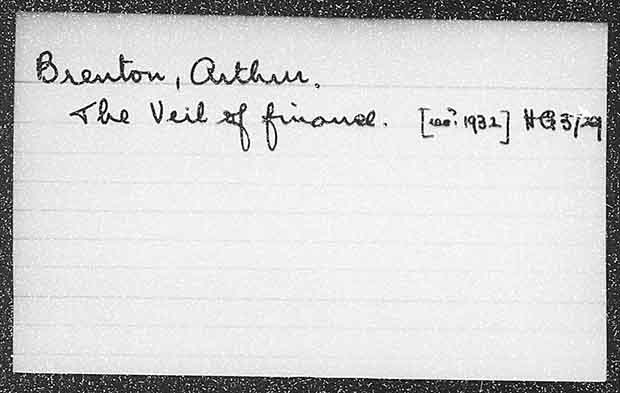 Brenton, Arthur.
The Veil of finance. [ 1932]